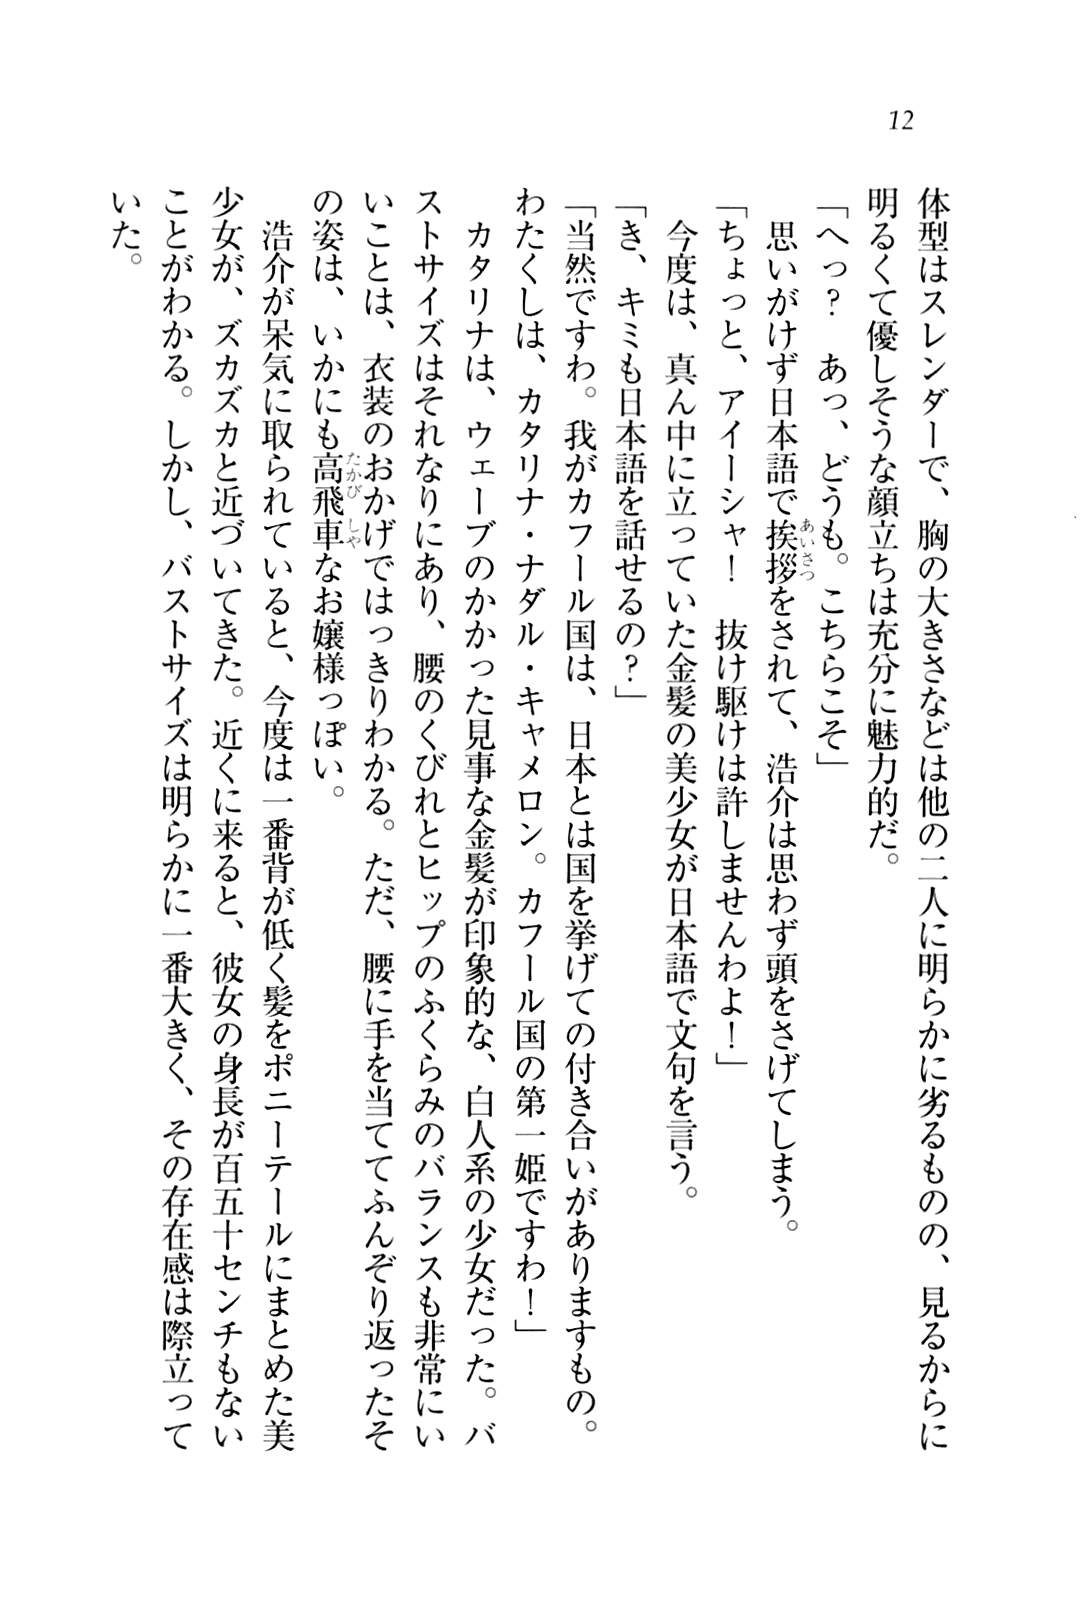 12
体型はスレンダーで、胸の大きさなどは他の二人に明らかに劣るものの、見るからに
明るくて優しそうな顔立ちは充分に魅力的だ。
「へっ？　あっ、どうも。こちらこそ」
　思いがけず日本語で挨拶をされて、浩介は思わず頭をさげてしまう。
「ちょっと、アイーシャ！　抜け駆けは許しませんわよ！」
　今度は、真ん中に立っていた金髪の美少女が日本語で文句を言う。
「き、キミも日本語を話せるの？」
「当然ですわ。我がカフール国は、日本とは国を挙げての付き合いがありますもの。
わたくしは、カタリナ・ナダル・キャメロン。カフール国の第一姫ですわ！」
　カタリナは、ウェーブのかかった見事な金髪が印象的な、白人系の少女だった。バ
ストサイズはそれなりにあり、腰のくびれとヒップのふくらみのバランスも非常にい
いことは、衣装のおかげではっきりわかる。ただ、腰に手を当ててふんぞり返ったそ
の姿は、いかにも高飛車なお嬢様っぽい。
　浩介が呆気に取られていると、今度は一番背が低く髪をポニーテールにまとめた美
少女が、ズカズカと近づいてきた。近くに来ると、彼女の身長が百五十センチもない
ことがわかる。しかし、バストサイズは明らかに一番大きく、その存在感は際立って
いた。